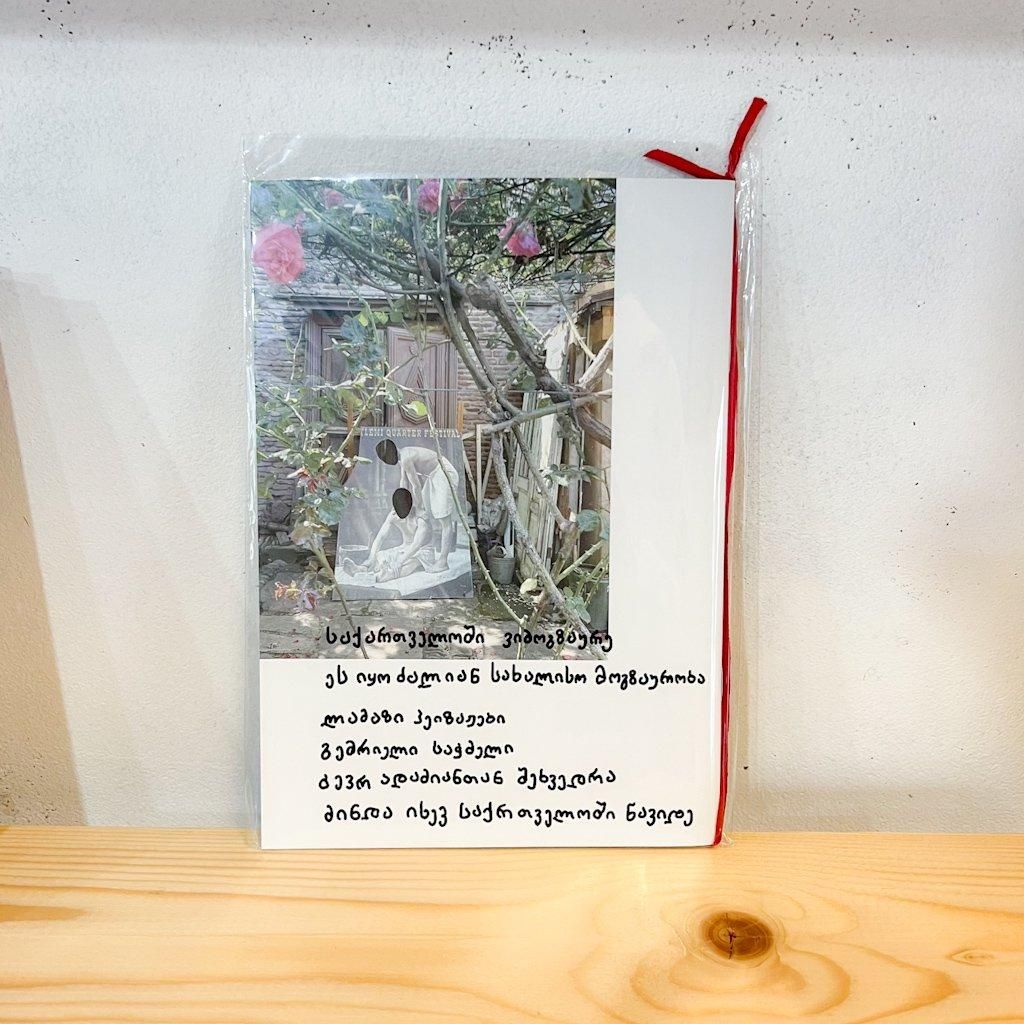 QUARTER FESTIVAL
საქართველოში ვიმოგზაურე
ეს იყო ძალიან სახალისო მოგზაურობა
ლამაზი პეიზაჟები
გემრიელი საჭმელი
ბევრ ადამიანთან შეხვედრა
მინდა ისევ საქრთველოში წავიდე